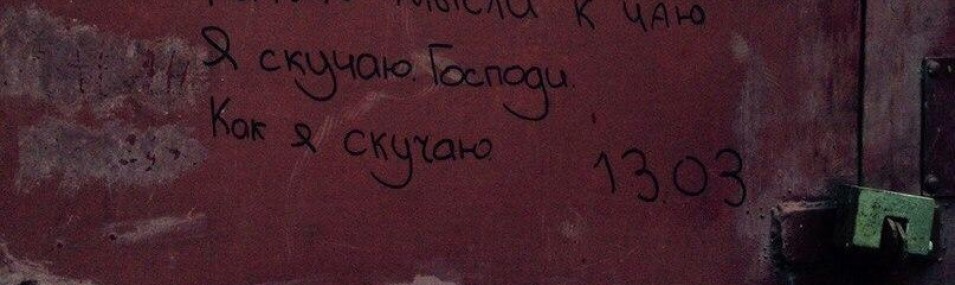 мысли к чаю
Я скучаю. Господи.
Как я скучаю
13.03